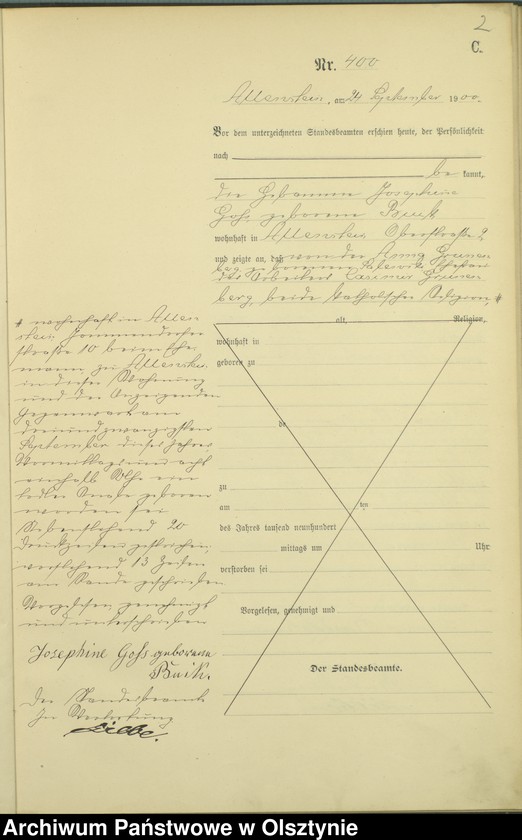 2
C.
Nr. 400
Allenstein, am 24 September 1900.
Vor dem unterzeichneten Standesbeamten erschien heute, der Persönlichkeit
nach
be kannt,
die Hebamme Josephine
Goss, geborene
wohnhaft in Allenstein, Oberstraße 2
und zeigte an, daß von der Anna
geborenen
des Arbeiters
berg, beide katholischer Religion, #
# wohnhaft in Allen-
stein,
straße 10 beim Ehe-
mann, zu Allenstein
in dieser Wohnung
und in Gegenwart
am
dreiundzwanzigsten
September dieses Jahres
Vormittags um acht
einhalb Uhr ein
todter Knabe geboren
worden sei
Nebenstehend 20
Druckzeilen gestrichen,
vorstehend 13 Zeilen
am Rande geschrieben
Vorgelesen, genehmigt
und unterschrieben
Josephine Goss geborene
Der Standesbeamte
In Vertretung
alt, Religion,
wohnhaft in
geboren zu
de
zu
am den
des Jahres tausend neunhundert
mittags um Uhr
verstorben sei
Vorgelesen, genehmigt und
Der Standesbeamte.
Archiwum Państwowe w Olsztynie